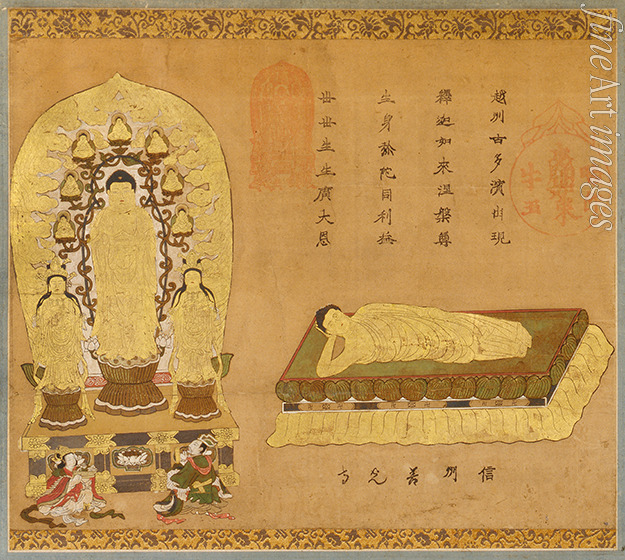 越州古多濱出現
釋迦如來涅槃尊
生身弥陀同利益
世世生生廣大恩
信州善光寺
fine Art images